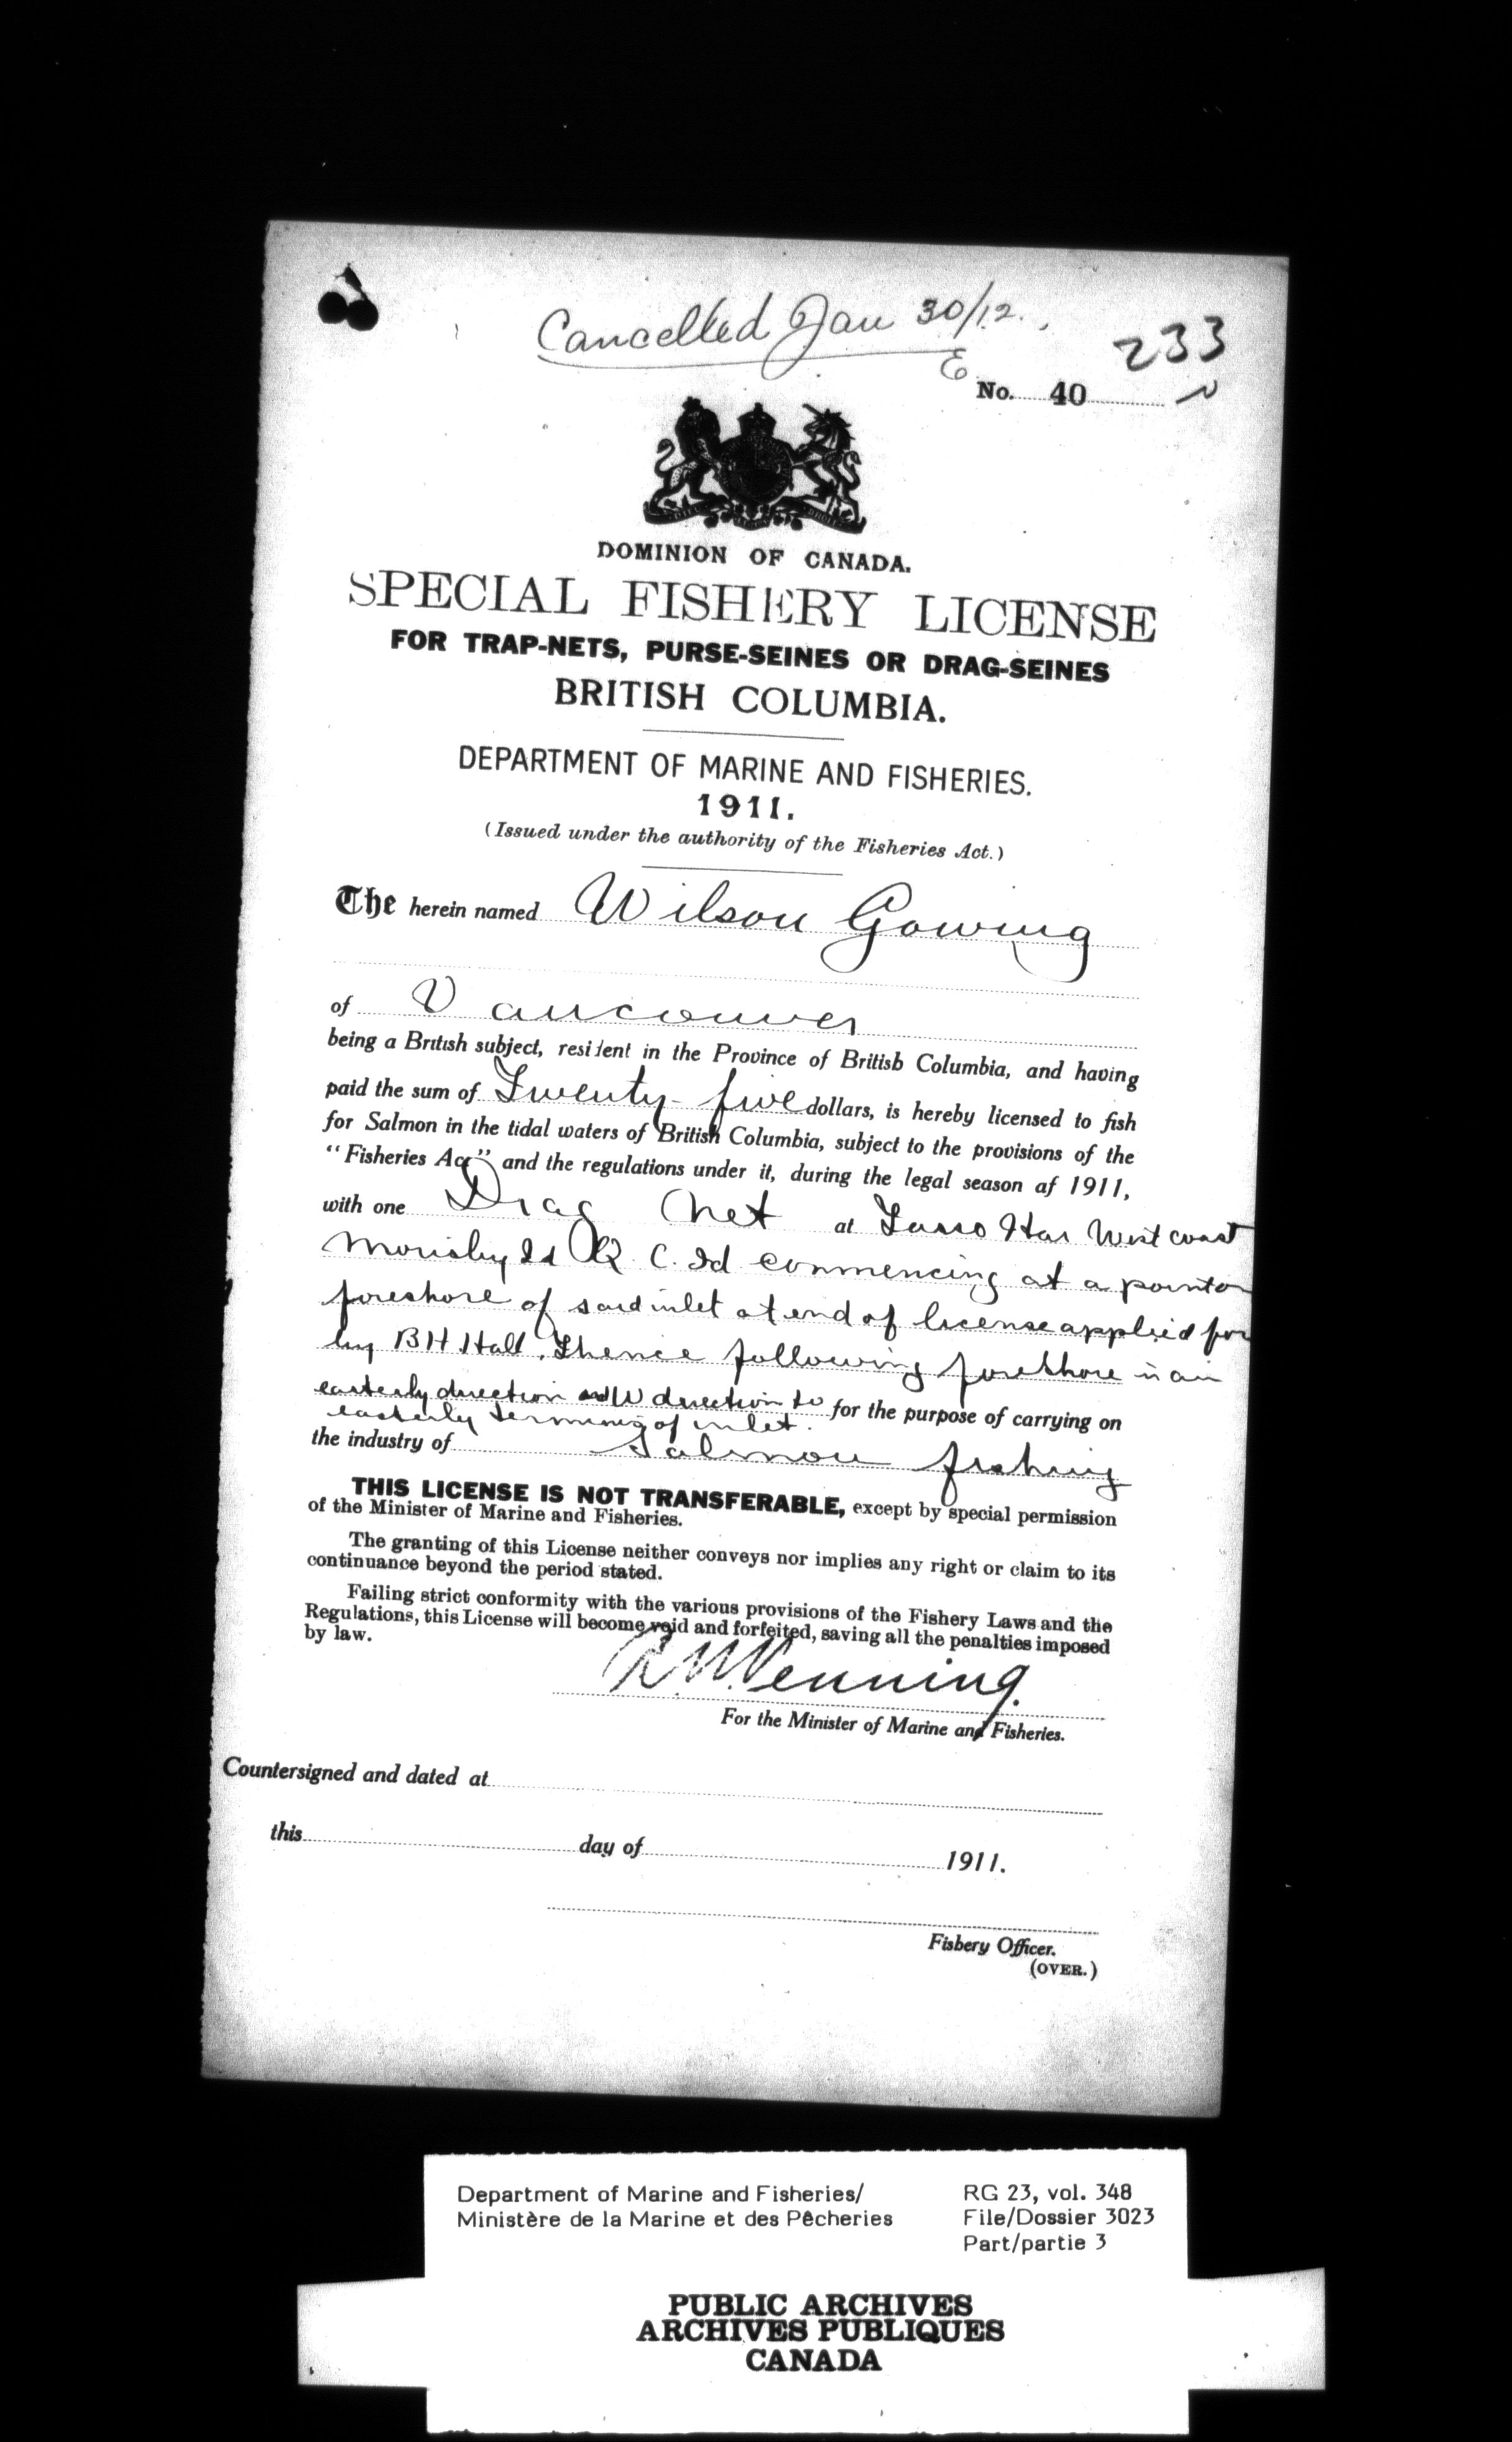 Cancelled Jan 30/12.
E
233
No. 40
DOMINION OF CANADA.
SPECIAL FISHERY LICENSE
FOR TRAP-NETS, PURSE-SEINES OR DRAG-SEINES
BRITISH COLUMBIA.
DEPARTMENT OF MARINE AND FISHERIES.
1911.
(Issued under the authority of the Fisheries Act.)
The herein named Wilson Gowing
of Vancouver
being a British subject, resident in the Province of British Columbia, and having
paid the sum of Twenty-five dollars, is hereby licensed to fish
for Salmon in the tidal waters of British Columbia, subject to the provisions of the
"Fisheries Act" and the regulations under it, during the legal season af 1911,
with one Drag Net at Tasso Har West coast
Morisby Id Q. C. Id commencing at a point on
foreshore of said inlet at end of license applied for
by B H Hall, Thence following foreshore in an
easterly direction and W direction to for the purpose of carrying on
easterly terminus of inlet.
the industry of Salmon fishing
THIS LICENSE IS NOT TRANSFERABLE, except by special permission
of the Minister of Marine and Fisheries.
The granting of this License neither conveys nor implies any right or claim to its
continuance beyond the period stated.
Failing strict conformity with the various provisions of the Fishery Laws and the
Regulations, this License will become void and forfeited, saving all the penalties imposed
by law.
R. N. Venning.
For the Minister of Marine and Fisheries.
Countersigned and dated at
this day of 1911.
Fishery Officer.
(OVER.)
Department of Marine and Fisheries/
Ministère de la Marine et des Pêcheries
RG 23, vol. 348
File/Dossier 3023
Part/partie 3
PUBLIC ARCHIVES
ARCHIVES PUBLIQUES
CANADA